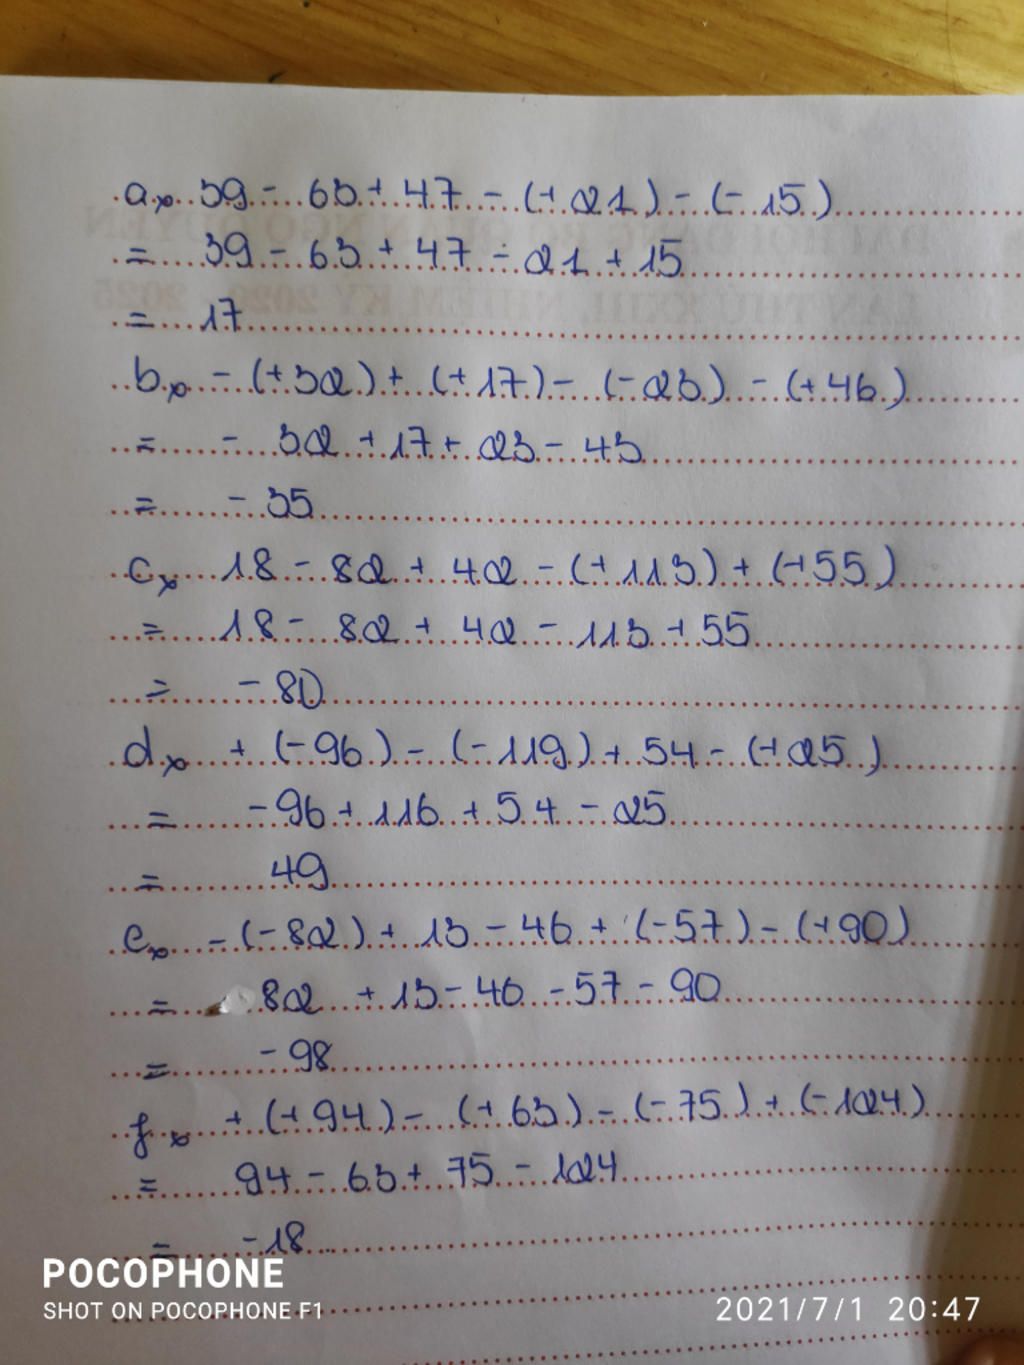 a, 39 - 63 + 47 - (+ 21) - (- 15)
= 39 - 63 + 47 - 21 + 15
= 17
b, - (+ 32) + (+ 17) - (- 23) - (+ 46)
= - 32 + 17 + 23 - 43
= - 35
c, 18 - 82 + 42 - (+ 113) + (+ 55)
= 18 - 82 + 42 - 113 + 55
= - 80
d, + (- 96) - (- 119) + 54 - (+ 25)
= - 96 + 116 + 54 - 25
= 49
e, - (- 82) + 13 - 46 + (- 57) - (+ 90)
= 82 + 13 - 46 - 57 - 90
= - 98
f, + (+ 94) - (+ 63) - (- 75) + (- 124)
= 94 - 63 + 75 - 124
= - 18
POCOPHONE
SHOT ON POCOPHONE F1
2021/7/1 20:47